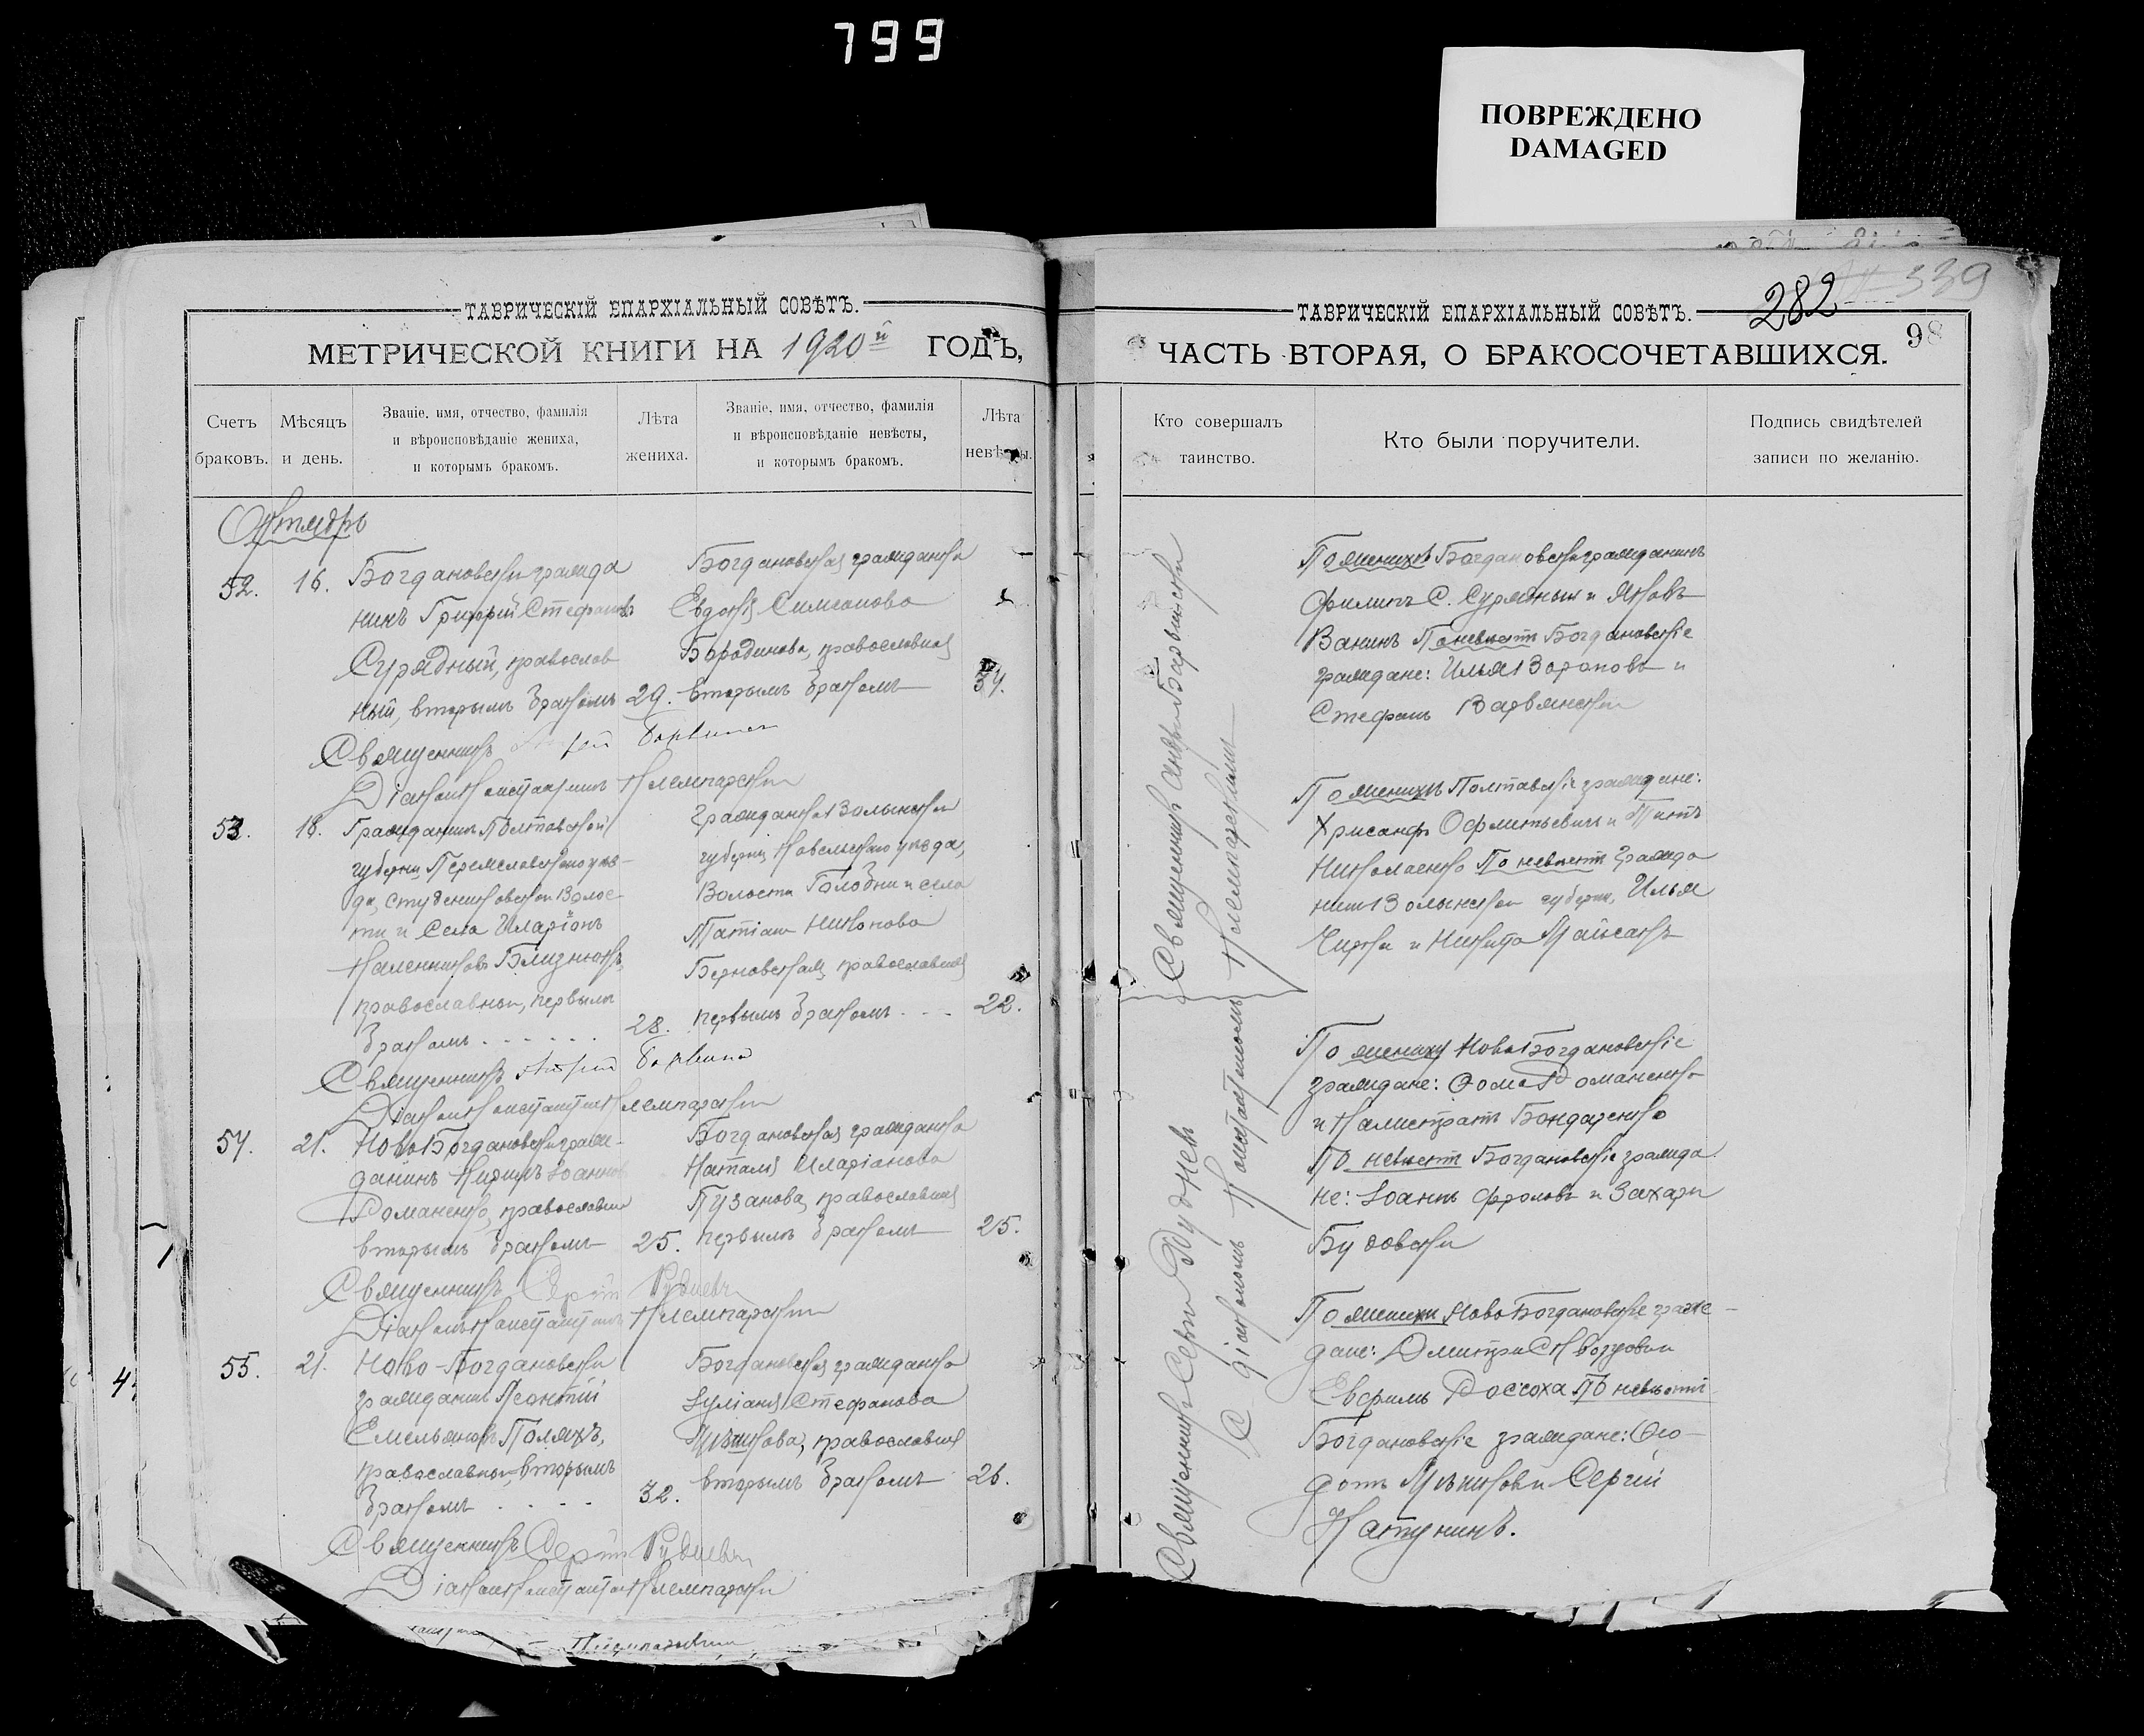 799
ПОВРЕЖДЕНО
DAMAGED
ТАВРИЧЕСКІЙ ЕПАРХІАЛЬНЫЙ СОВѢТЪ.
МЕТРИЧЕСКОЙ КНИГИ НА 1920й ГОДЪ,
Счетъ браковъ.
Мѣсяцъ и день.
Званіе, имя, отчество, фамилія
и вѣроисповѣданіе жениха,
и которымъ бракомъ.
Лѣта жениха.
Званіе, имя, отчество, фамилія
и вѣроисповѣданіе невѣсты,
и которымъ бракомъ.
Лѣта невѣсты.
Октябрь
52. 16. Богдановскій гражда
нинъ Григорій Стефановъ
Сурядный, православ
ный, вторымъ бракомъ 29.
Богдановская гражданка
Евдокія Симеонова
Бородинова, православная
вторымъ бракомъ 34.
Священникъ Андрей
Діаконъ Константинъ Клемпарскій
53. 18. Гражданинъ Полтавской
губерніи Переяславскаго уѣз-
да, Студениковской Волос-
ти и села Иларіонъ
Близнюкъ,
православный, первымъ
бракомъ . . . . . . 28.
Гражданка Волынской
губерніи Ковельскаго уѣзда,
Волости Голобни и села
Татіана Никонова
Берновская, православная
первымъ бракомъ . . - 22.
Священникъ Андрей
Діаконъ Константинъ Клемпарскій
54. 21. Ново Богдановскій граж-
данинъ Кириллъ Іоанновъ
Романенко, православный
вторымъ бракомъ 25.
Богдановская гражданка
Наталія Иларіонова
Пузанова, православная
первымъ бракомъ 25.
Священникъ Сергій Рудневъ
Діаконъ Константинъ Клемпарскій
55. 21. Ново-Богдановскій
гражданинъ Леонтій
Емельяновъ Поляхъ,
православный, вторымъ
бракомъ . . . . 32.
Богдановская гражданка
Іуліанія Стефанова
православная
вторымъ бракомъ 26.
Священникъ Сергій Рудневъ
Діаконъ Константинъ Клемпарскій
ТАВРИЧЕСКІЙ ЕПАРХІАЛЬНЫЙ СОВѢТЪ.
282
339
98
ЧАСТЬ ВТОРАЯ, О БРАКОСОЧЕТАВШИХСЯ.
Кто совершалъ таинство.
Кто были поручители.
Подпись свидѣтелей
записи по желанію.
Священникъ Андрей
Клемпарскимъ
Священникъ Сергій Рудневъ
С діакономъ Константиномъ
По женихѣ Богдановскій гражданинъ
Филипъ С. Сурядный и Яковъ
Ванинъ По невѣстѣ Богдановскіе
граждане: Илья Вороновъ и
Стефанъ Варвянскій
По женихѣ Полтавскіе граждане:
Хрисанфъ и Титъ
Николаенко По невѣстѣ гражда
не Волынской губерніи, Илья
и Никита
По жениху Ново Богдановскіе
граждане: Ѳома Романенко
и Калистратъ Бондаренко
По невѣстѣ Богдановскіе гражда
не: Іоаннъ Фроловъ и Захарій
Будовскій
По жениху Ново Богдановскіе граж-
дане: Дмитрій
Евфимъ По невѣстѣ
Богдановскіе граждане: Ѳео-
дотъ и Сергій
Катунинъ.